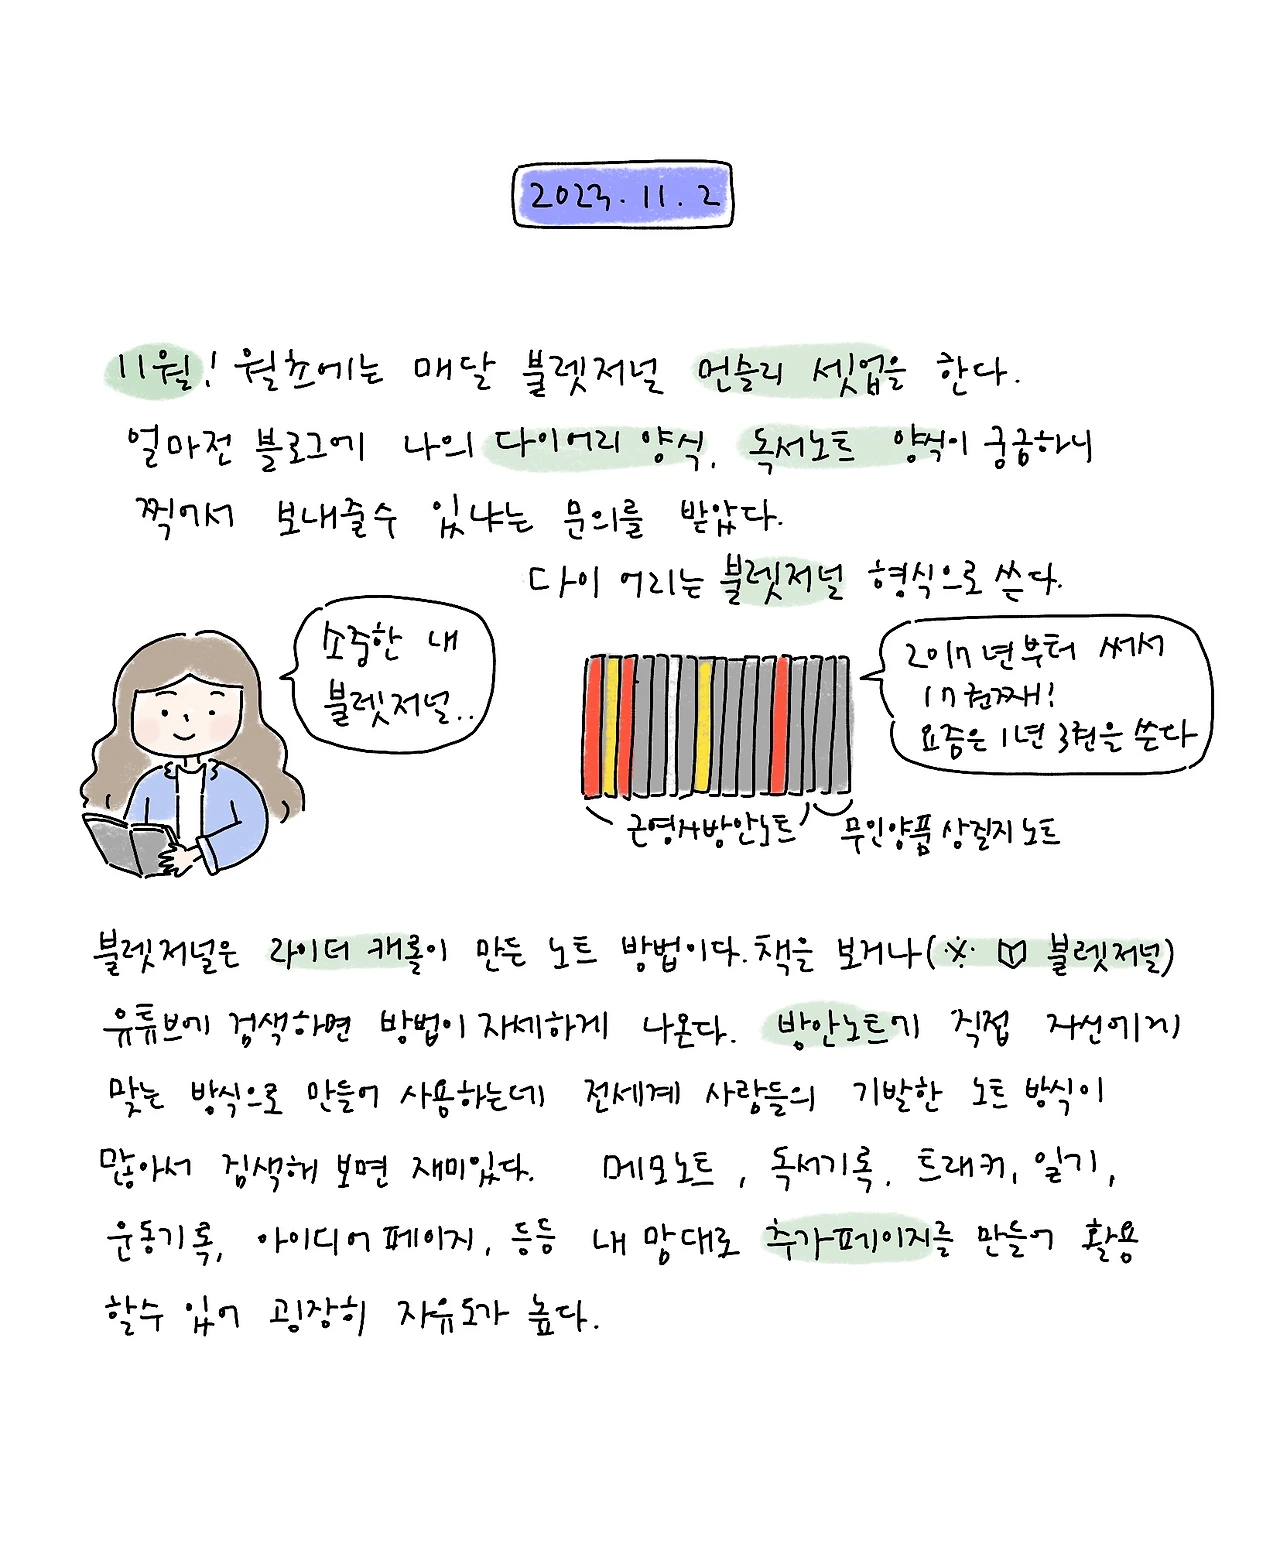 2023. 11. 2
11월! 월초에는 매달 불렛저널 먼슬리 셋업을 한다.
얼마전 블로그에 나의 다이어리 양식, 독서노트 양식이 궁금하니
찍어서 보내줄수 있냐는 문의를 받았다.
다이어리는 불렛저널 형식으로 쓴다.
소중한 내
불렛저널..
2017년부터 써서
17권째!
요즘은 1년 3권을 쓴다
근영사방안노트
무인양품 상질지노트
불렛저널은 라이더 캐롤이 만든 노트 방법이다. 책을 보거나(※ 불렛저널)
유튜브에 검색하면 방법이 자세하게 나온다. 방안노트에 직접 자신에게
맞는 방식으로 만들어 사용하는데 전세계 사람들의 기발한 노트 방식이
많아서 검색해 보면 재미있다. 메모노트, 독서기록, 트래커, 일기,
운동기록, 아이디어 페이지, 등등 내 맘대로 추가페이지를 만들어 활용
할수 있어 굉장히 자유도가 높다.